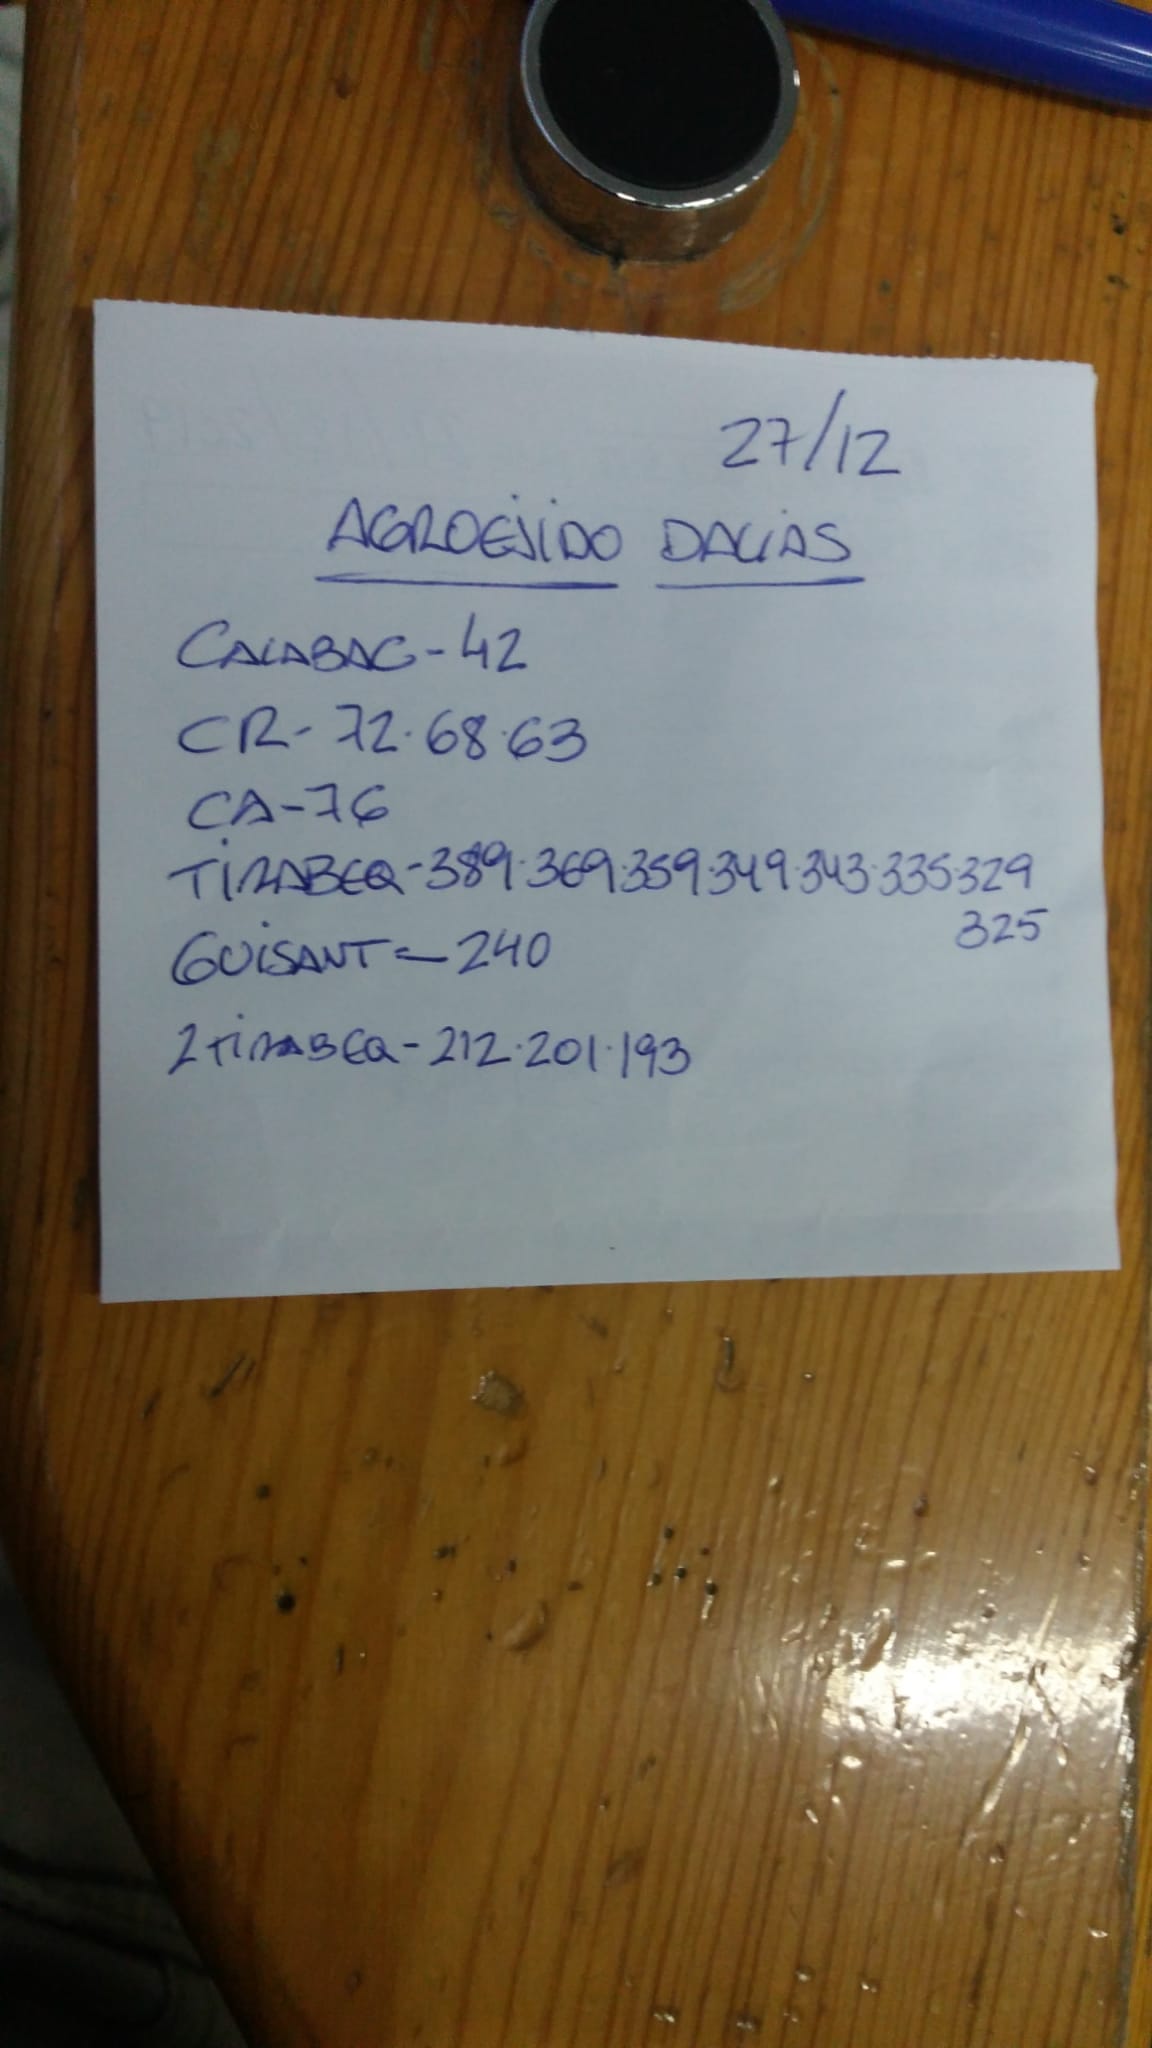 27/12
AGROEJIDO DALIAS
CALABAC-42
CR-72.68.63
CA-76
TIRABEQ-389.369.359.349.343.335.329
325
GUISANT-240
2TIRABEQ-212.201.193